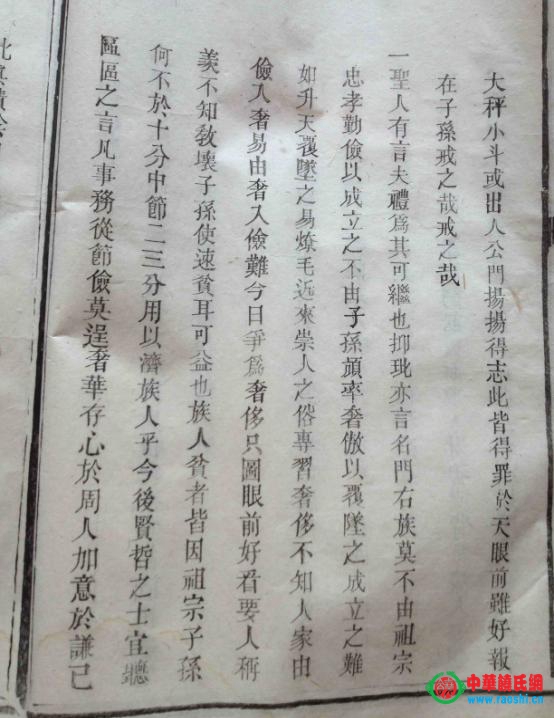 大秤小斗或出入公門揚揚得志此皆得罪於天眼前雖好報
在子孫戒之哉戒之哉
一聖人有言夫禮爲其可繼也抑玭亦言名門右族莫不由祖宗
忠孝勤儉以成立之不由子孫頑率奢傲以覆墜之成立之難
如升天覆墜之易燎毛近來崇人之俗專習奢侈不知人家由
儉入奢易由奢入儉難今日爭爲奢侈只圖眼前好看要人稱
羨不知敎壞子孫使速貧耳可益也族人貧者皆因祖宗子孫
何不於十分中節二三分用以濟族人乎今後賢哲之士宜聽
區區之言凡事務從節儉莫逞奢華存心於周人加意於謙己
中華饒氏網
www.raoshi.cn